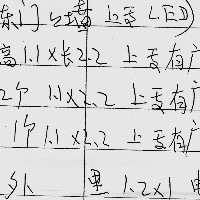 东门 墙 上委 LED)
高 1.1×长2.2 上委有广
2个 1.1×2.2 上委有广
1个 1.1×2.2 上委有广
外 里 1.2×1